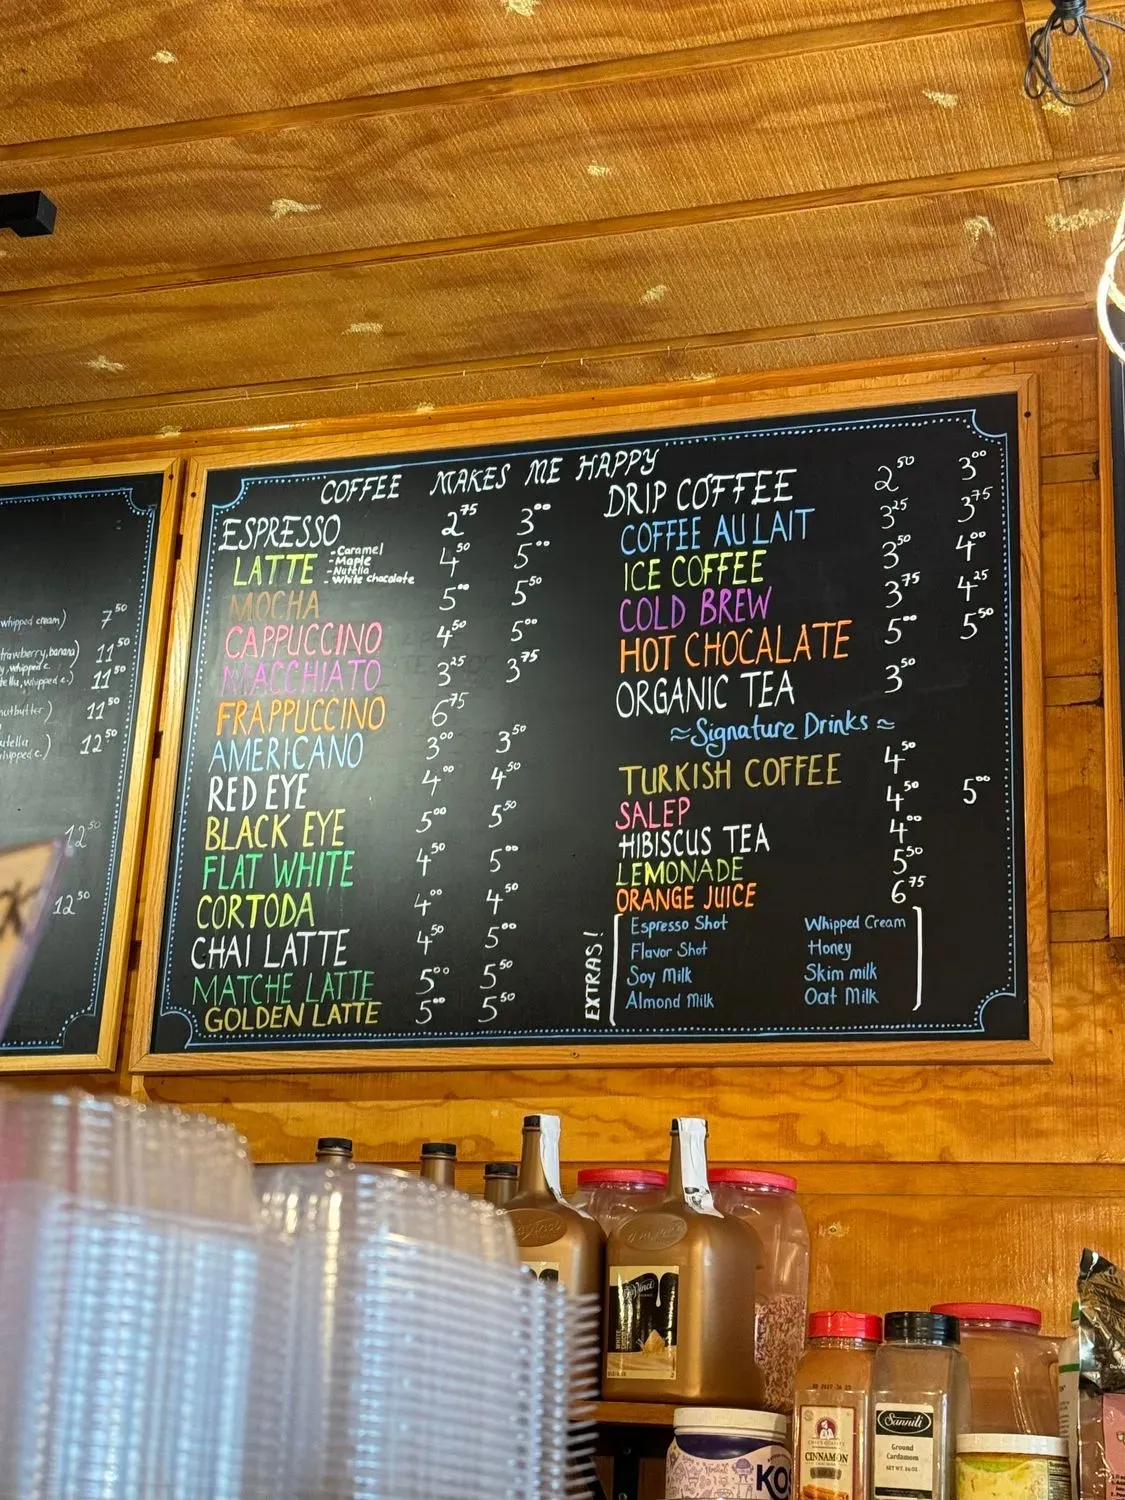 whipped cream) 7⁵⁰
trawberry, banana) 11⁵⁰
y, whipped c.
tella, whipped c.) 11⁵⁰
nutbutter) 11⁵⁰
utella
whipped c.) 12⁵⁰
12⁵⁰
12⁵⁰
COFFEE MAKES ME HAPPY
ESPRESSO 2⁷⁵ 3⁰⁰
LATTE 4⁵⁰ 5⁰⁰
- Caramel
- Maple
- Nutella
- White chocolate
MOCHA 5⁰⁰ 5⁵⁰
CAPPUCCINO 4⁵⁰ 5⁰⁰
MACCHIATO 3²⁵ 3⁷⁵
FRAPPUCCINO 6⁷⁵
AMERICANO 3⁰⁰ 3⁵⁰
RED EYE 4⁰⁰ 4⁵⁰
BLACK EYE 5⁰⁰ 5⁵⁰
FLAT WHITE 4⁵⁰ 5⁰⁰
CORTODA 4⁰⁰ 4⁵⁰
CHAI LATTE 4⁵⁰ 5⁰⁰
MATCHE LATTE 5⁰⁰ 5⁵⁰
GOLDEN LATTE 5⁰⁰ 5⁵⁰
DRIP COFFEE 2⁵⁰ 3⁰⁰
COFFEE AU LAIT 3²⁵ 3⁷⁵
ICE COFFEE 3⁵⁰ 4⁰⁰
COLD BREW 3⁷⁵ 4²⁵
HOT CHOCALATE 5⁰⁰ 5⁵⁰
ORGANIC TEA 3⁵⁰
≈Signature Drinks≈
TURKISH COFFEE 4⁵⁰
SALEP 4⁵⁰ 5⁰⁰
HIBISCUS TEA 4⁰⁰
LEMONADE 5⁵⁰
ORANGE JUICE 6⁷⁵
EXTRAS!
Espresso Shot Whipped Cream
Flavor Shot Honey
Soy Milk Skim milk
Almond Milk Oat Milk
DaVinci
CINNAMON
Sannili
Ground
Cardamom
NET WT. 16 OZ
KOS